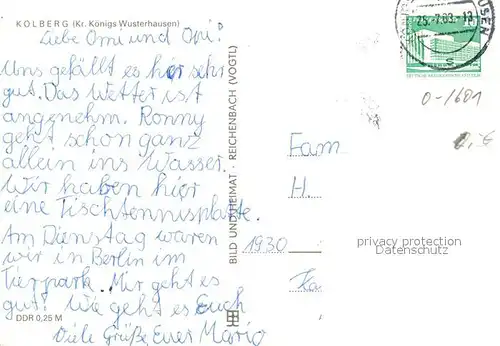 KOLBERG (Kr. Königs Wusterhausen)
Liebe Omi und Opi!
Uns gefällt es hier sehr
gut. Das Wetter ist
angenehm. Ronny
geht schon ganz
allein ins Wasser.
Wir haben hier
eine Tischtennisplatte.
Am Dienstag waren
wir in Berlin im
Tierpark. Mir geht es
gut! Wie geht es Euch
Viele Grüße Euer Mario
DDR 0,25 M
BILD UND HEIMAT · REICHENBACH (VOGTL)
25.-7.83.-13
10
0-1601
Fam
H.
1930
privacy protection
Datenschutz